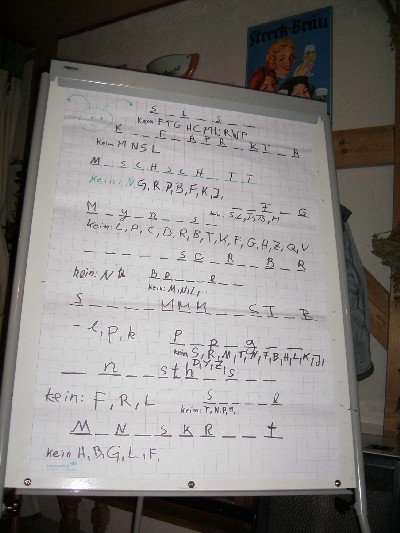 Streck-Bräu
S _ 1 _ 2 _ _
kein F T G H C M L R W P
K _ _ F _ B P B _ K T _ R
kein M N S L
M _ S C H S C H _ T T
kein: N, G, R, P, B, F, K, Z,
M _ y _ n _ _ s _ _
_ _ F _ G
kein: L, P, C, D, R, B, T, K, F, G, H, Z, Q, V
_ _ _ _ _ S C _ R _ _ B _ R
kein: N
B R _ _ _ l _ _
kein: M, N, L,
S _ _ _ _ M M M _ _ S T _ E
- l, p, k
P _ _ p _ g _ _ _
kein S, R, M, T, N, F, B, H, L, K, J,
D, Y, Z,
_ _ n _ _ s t h _ s _ _
kein: F, R, L
S _ _ _ l
kein: T, N, P, M,
M _ N _ S K R _ _ t
kein H, B, G, L, F,